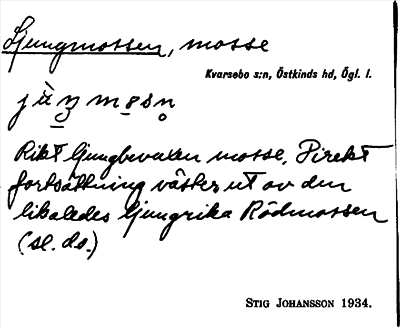 Ljungmossen, mosse
Kvarsebo s:n, Östkinds hd, Ögl. l.
Rikt ljungbevaxen mosse. Direkt
fortsättning väster ut av den
likaledes ljungrika Rödmossen
(se. ds.)
STIG JOHANSSON 1934.